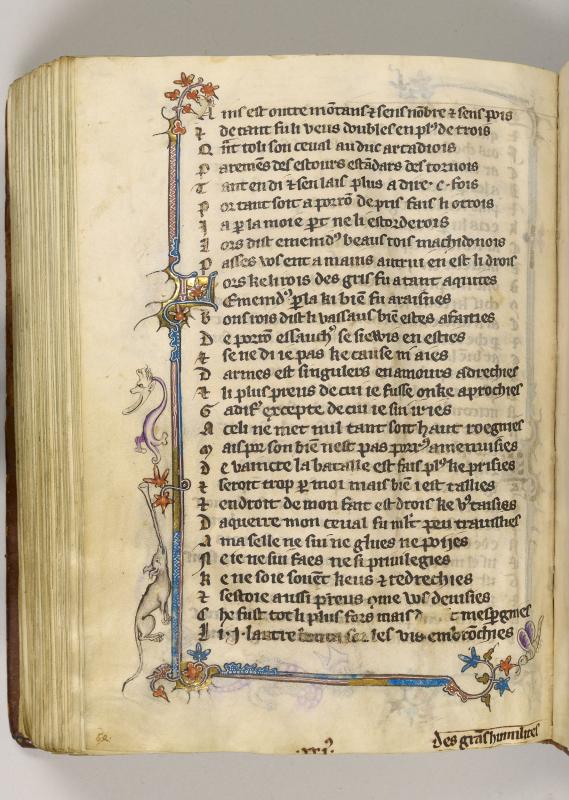 A nis est outre mōtans ⁊ sens nōbre ⁊ sens pois
⁊ de tant fu li veus doubles en plꝰ de trois
Q n̄t toli son ceual au duc arcadiois
P aremēs des estours estādars des tornois
T ant en di ⁊ sen lais plus a dire · c · fois
P or tant soit a porrō de pris fais li otrois
I a p la moie pt ne li estorderois
L ors dist emenidꝰ beaus rois machidonois
P asses vos ent a mains autrui en est li drois
L ors ke li rois des gris fu atant aquites
Emenidꝰ p la ki biē fu araisnies
B ons rois dist li vassaus biē estes afaities
D e porrō essauchꝰ se siewis en esties
⁊ se ne di ie pas ke cause m aies
D armes est singulers en amours adrechies
⁊ li plus preus de cui ie fusse onke aprochies
G adifꝰ excepte de cui ie sui iries
A celi ne met nul tant soit haut roegnies
M ais por son biē nest pas porrꝰ amenuisies
D e vaincre la bataille est fais plꝰ ke prisies
⁊ seroit trop p moi mais biē i est taillies
⁊ endroit de mon fait est drois ke vꝰ taisies
D aquerre mon ceual fu ml't peu trauillies
A ma selle ne sui ne glues ne poijes
N e ie ne sui faes ne si priuilegies
K e ne soie souēt keus ⁊ redrechies
⁊ sestoie aussi preus 9me vos deuisies
C he fust tot li plus fors mais t mespgnies
L i · j · lautre les vis embrōchies
des grās humilites
·xxjꝰ